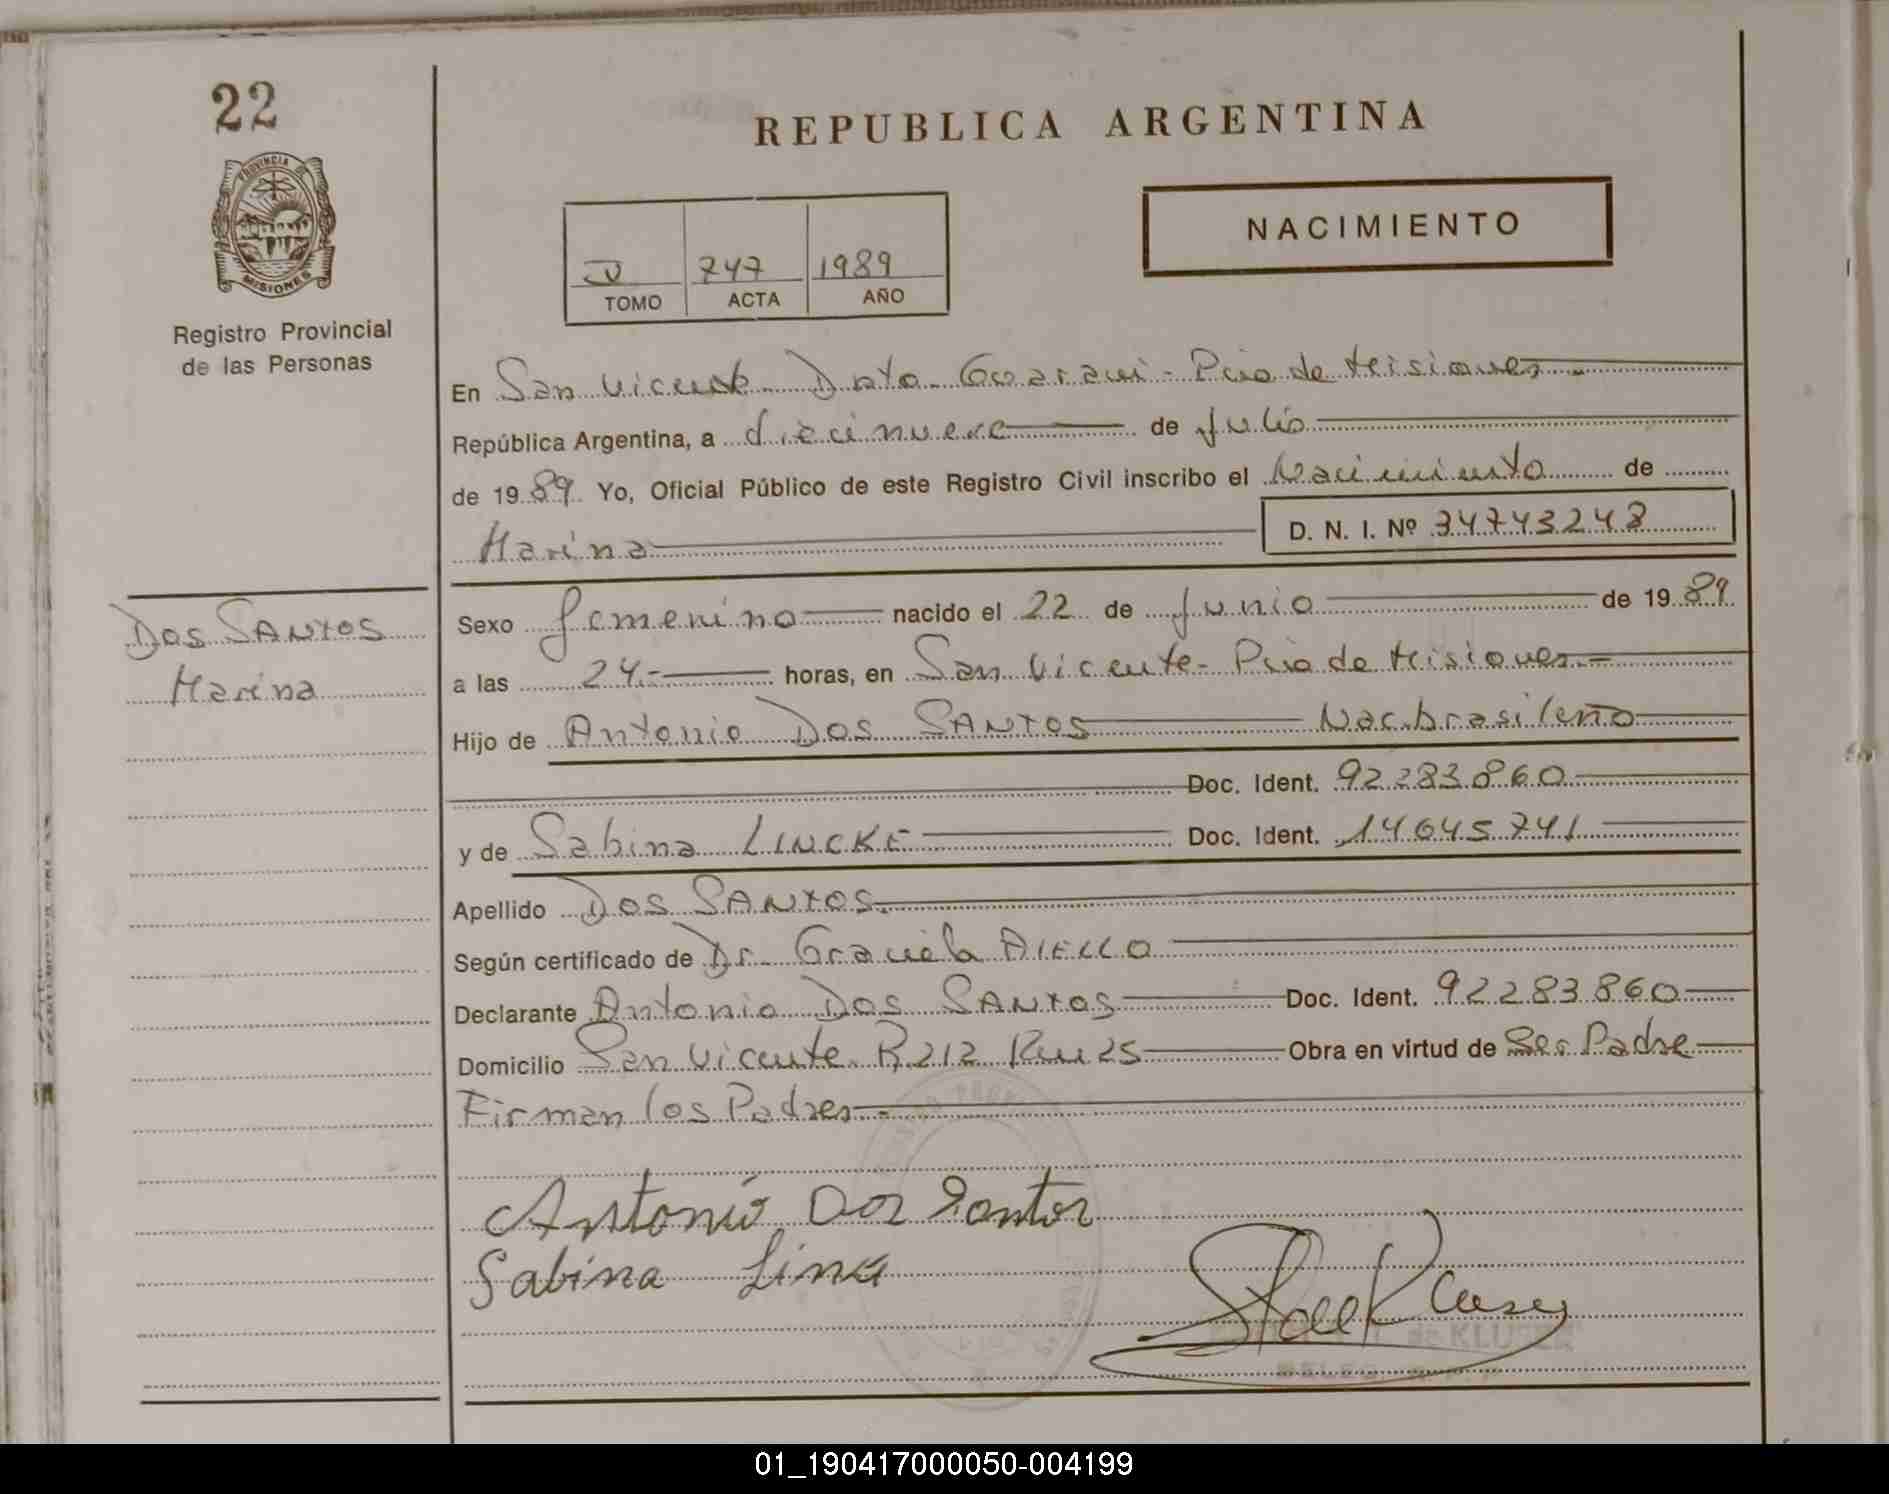 22
REPUBLICA ARGENTINA
PROVINCIA DE
MISIONES
Registro Provincial
de las Personas
V 747 1989
TOMO ACTA AÑO
NACIMIENTO
En San Vicente Dpto. Guarani - Pcia de Misiones
República Argentina, a diecinueve de Julio
de 1989 Yo, Oficial Público de este Registro Civil inscribo el Nacimiento de
Marina D. N. I. Nº 34743248
Dos SANTOS
Marina
Sexo femenino nacido el 22 de Junio de 1989
a las 24.- horas, en San Vicente - Pcia de Misiones.-
Hijo de Antonio Dos SANTOS Nac. brasileño
Doc. Ident. 92283860
y de Sabina LINCKE Doc. Ident. 14645741
Apellido Dos SANTOS.
Según certificado de Dr. Graciela AIELLO
Declarante Antonio Dos SANTOS Doc. Ident. 92283860
Domicilio San Vicente R 212 Km 25 Obra en virtud de Ser Padre
Firman los Padres.-
Antonio Dos Santos
Sabina Link
de KLUSER
01_190417000050-004199